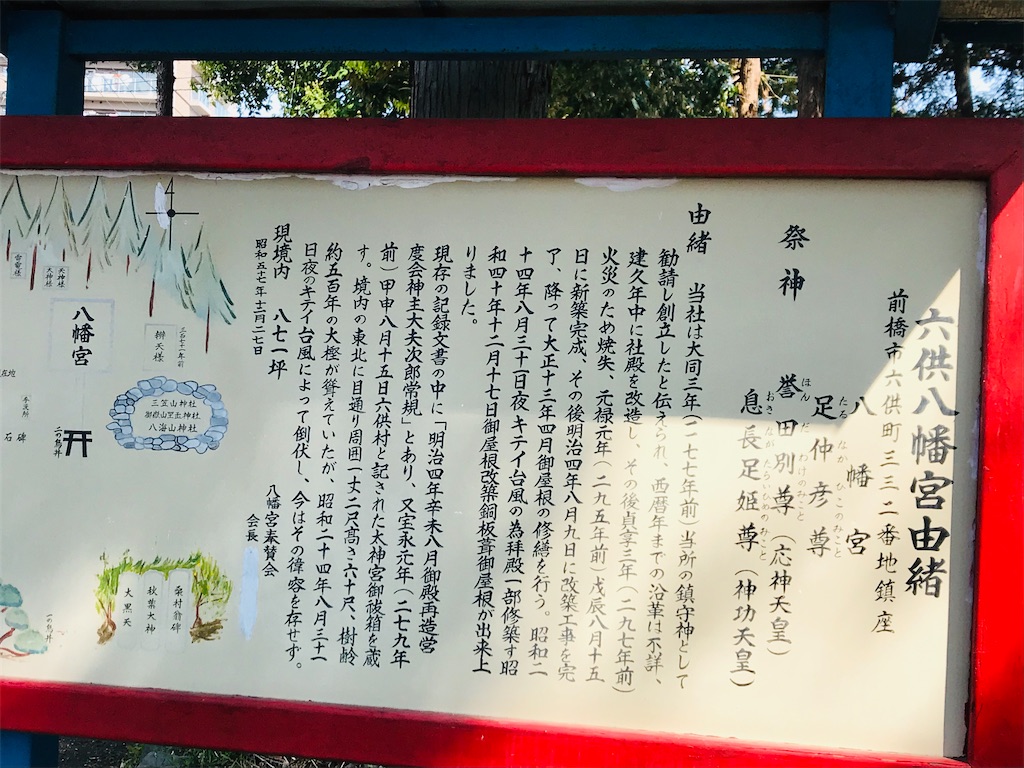 六供八幡宮由緒
前橋市六供町三三二番地鎮座
八幡宮
祭神
足仲彦尊
たる なか ひこのみこと
誉田別尊(応神天皇)
ほん だ わけのみこと
息長足姫尊(神功天皇)
おき なが たらしひめのみこと
由緒
当社は大同三年(一一七七年前)当所の鎮守神として
勧請し創立したと伝えられ、西暦年までの沿革は不詳、
建久年中に社殿を改造し、その後貞享三年(二九七年前)
火災のため焼失、元禄元年(二九五年前)(戊辰八月十五
日に新築完成、その後明治四年八月九日に改築工事を完
ア、降って大正十三年四月御屋根の修繕を行う。昭和二
十四年八月三十一日夜キテイ台風の為拝殿一部修築す昭
和四十年十二月十七日御屋根改築銅板葺御屋根が出来上
りました。
現存の記録文書の中に「明治四年辛未八月御殿再造営
度会神主大夫次郎常規」とあり、又宝永元年(二七九年
前)甲申八月十五日六供村と記された太神宮御祓箱を蔵
す。境内の東北に目通り周囲一丈二尺高さ六十尺、樹齢
約五百年の大樫が聳えていたが、昭和二十四年八月三十一
日夜のキテイ台風によって倒伏し、今はその偉容を存せず。
現境内 八七一坪
昭和五十七年十二月二日
八幡宮奉賛会
会長
4
雷電様
天神様
大神様
八幡宮
辨天様
三〇七十一年前
三笠山神社
御嶽山座王神社
八海山神社
二の鳥井
手洗所
石碑
現在地
桑村翁碑
秋葉大神
大黒天
一の鳥井